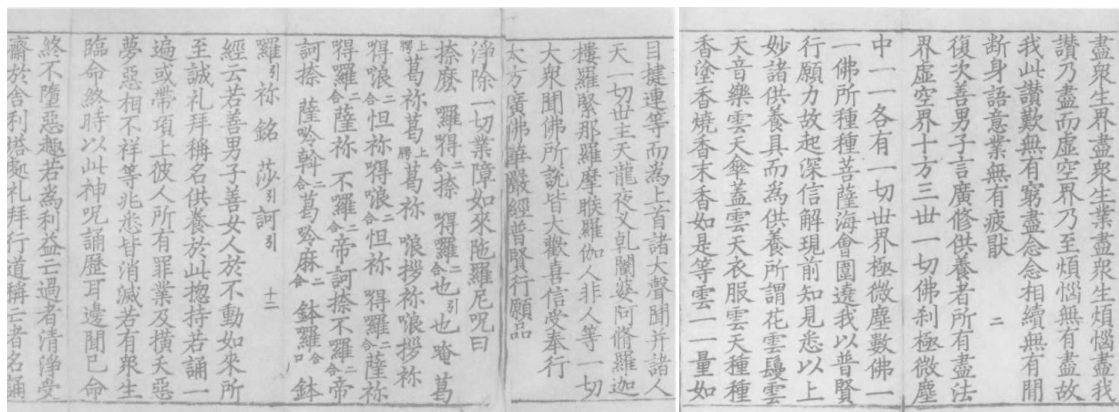 盡衆生界盡衆生業盡衆生煩惱盡我
讃乃盡而虛空界乃至煩惱無有盡故
我此讃歎無有窮盡念念相續無有間
断身語意業無有疲猒 二
復次善男子言廣修供養者所有盡法
界虛空界十方三世一切佛刹極微塵
中一一各有一切世界極微塵數佛一
一佛所種種菩薩海會圍遶我以普賢
行願力故起深信解現前知見悉以上
妙諸供養具而爲供養所謂花雲鬘雲
天音樂雲天傘蓋雲天衣服雲天種種
香塗香燒香末香如是等雲一一量如
目揵連等而爲上首諸大聲聞并諸人
天一切世主天龍夜叉乹闥婆阿脩羅迦
樓羅緊那羅摩睺羅伽人非人等一切
大衆聞佛所説皆大歡喜信受奉行
大方廣佛華嚴經普賢行願品
淨除一切業障如來陁羅尼呪曰
捺麽 羅㘁合捺 㘁羅二合也引也 唵 葛
上㗁葛祢葛上㗁葛祢 㘄拶祢㘄拶祢
㘁㘄二合怛祢㘁㘄二合怛祢 㘁羅二合薩祢
㘁羅二合薩祢 不羅二合帝訶捺不羅二合帝
訶捺 薩呤斡二合葛呤麻二合 鉢羅合口鉢
羅引祢 銘 莎引訶引 十二
經云若善男子善女人於不動如來所
至誠礼拜稱名供養於此揔持若誦一
遍或帶項上彼人所有罪業及橫夭惡
夢惡相不祥等兆悉皆消滅若有衆生
臨命終時以此神呪誦歷耳邊聞已命
終不墮惡趣若爲利益亡過者清淨受
齋於舍利塔處礼拜行道稱亡者名誦